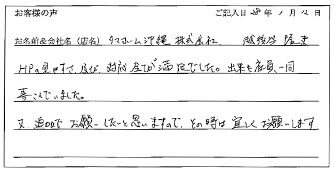 お客様の声 ご記入日 28年 1月 12日
お名前&会社名(店名) タマホーム沖縄 株式会社
HPの見やすさ、及び、対応 全て満足でした。出来も店員一同
喜こんでいました。
又、追加でお願いしたいと思いますので、その時は宜しくお願いします